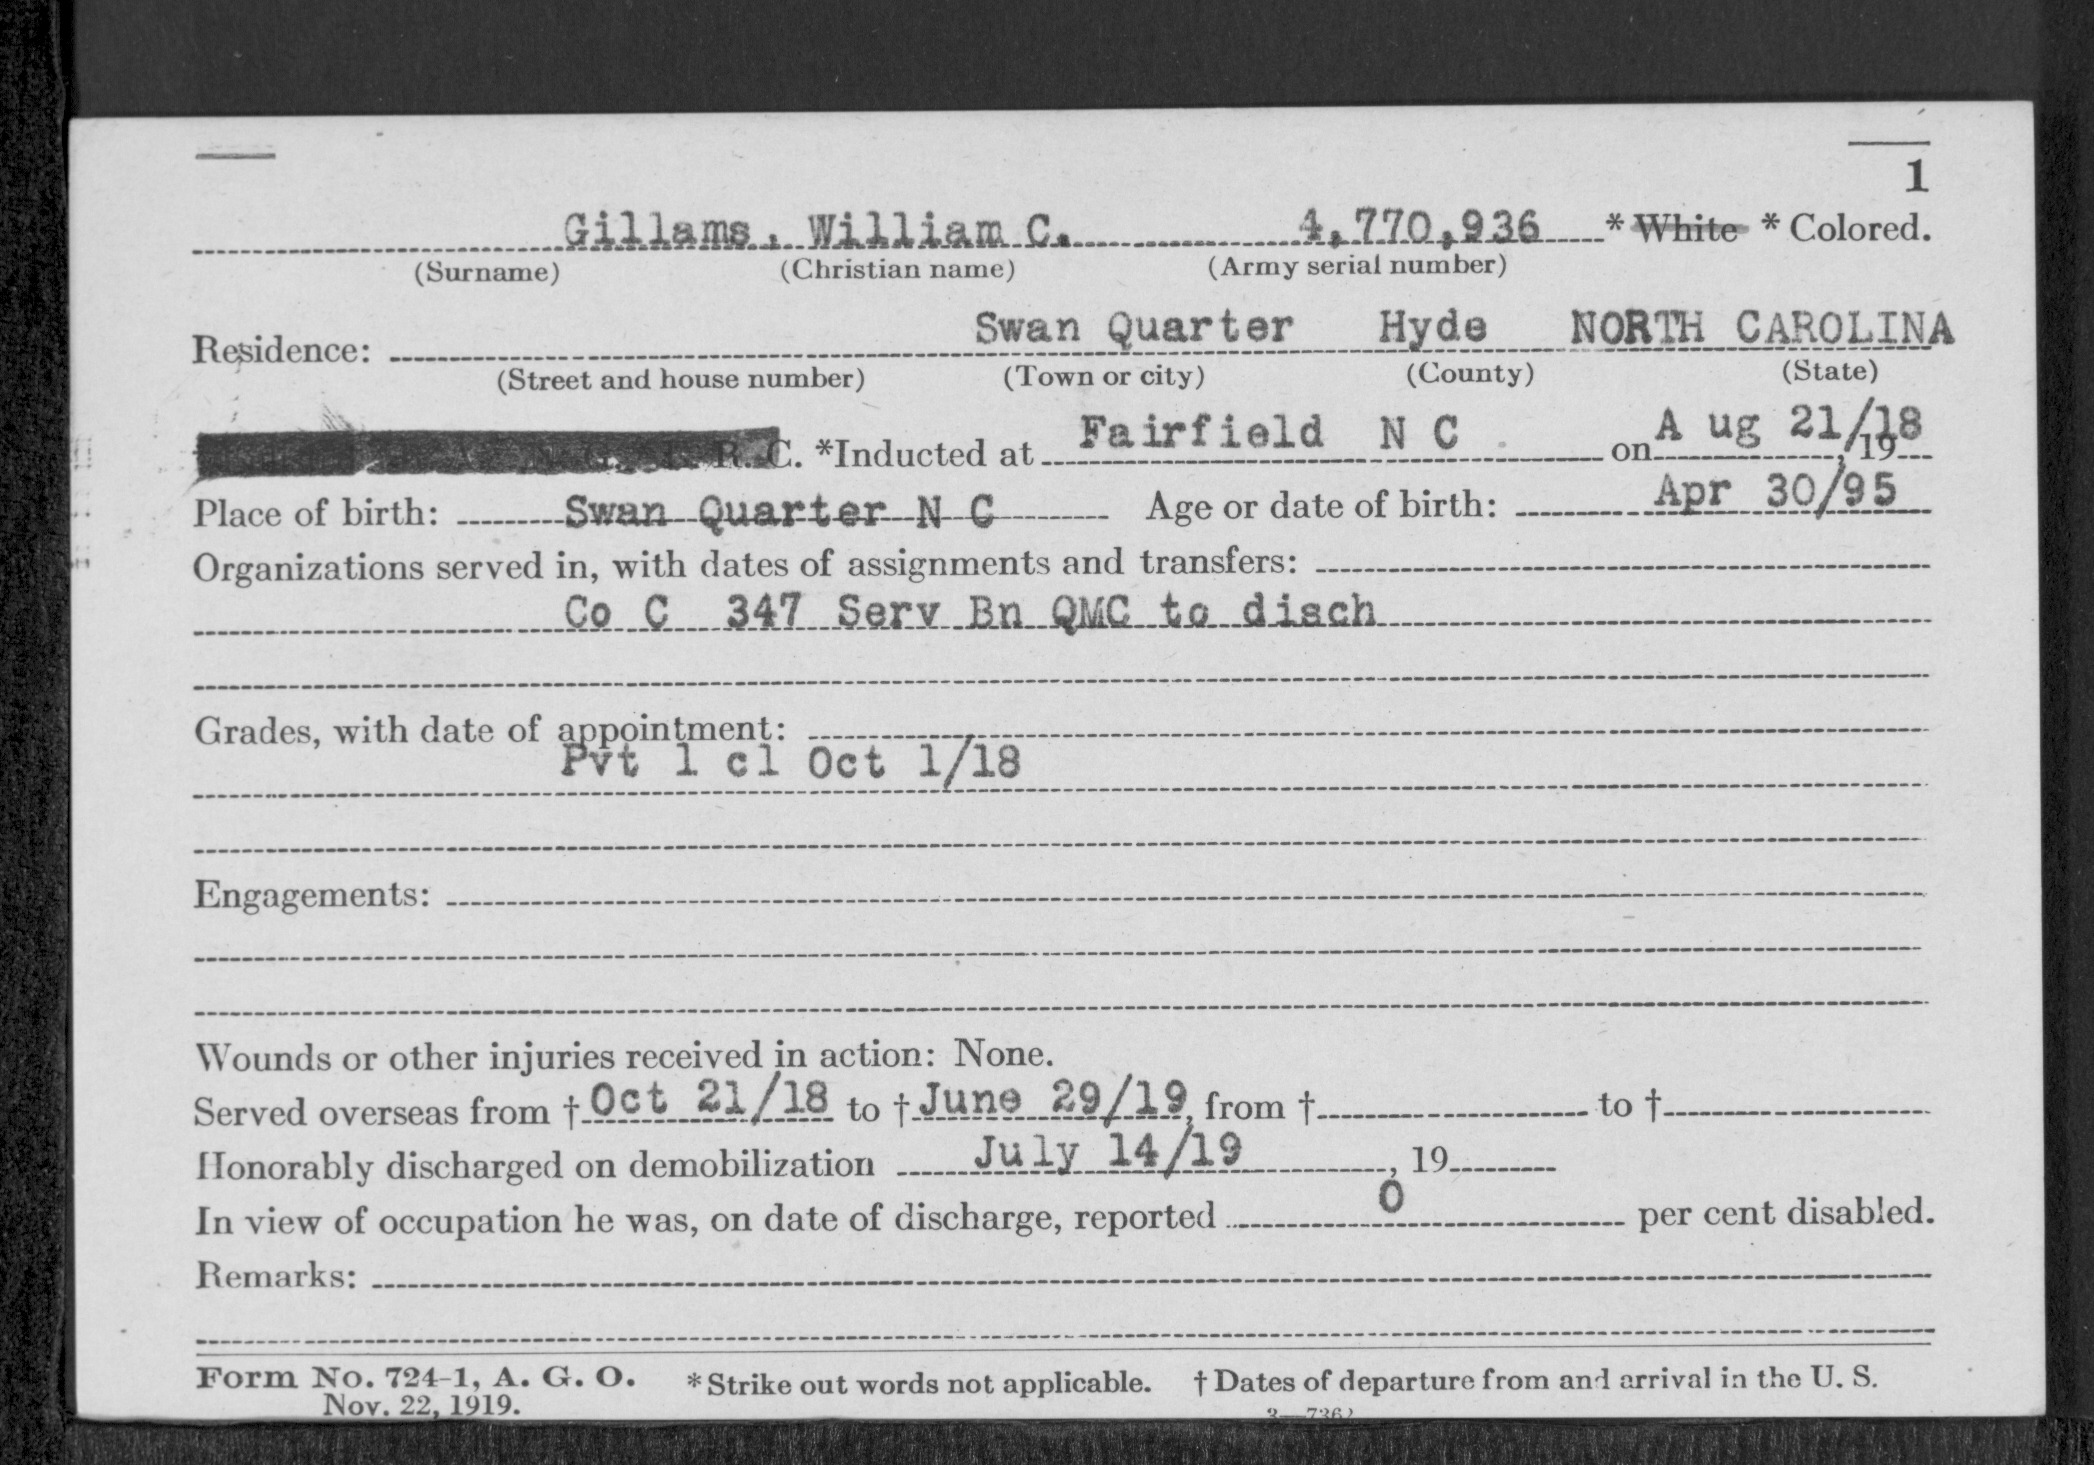 1
Gillams, William C. 4,770,936 * White * Colored.
(Surname) (Christian name) (Army serial number)
Residence: Swan Quarter Hyde NORTH CAROLINA
(Street and house number) (Town or city) (County) (State)
R. C. *Inducted at Fairfield N C on A ug 21/18, 19
Place of birth: Swan Quarter N C Age or date of birth: Apr 30/95
Organizations served in, with dates of assignments and transfers:
Co C 347 Serv Bn QMC to disch
Grades, with date of appointment:
Pvt 1 cl Oct 1/18
Engagements:
Wounds or other injuries received in action: None.
Served overseas from † Oct 21/18 to † June 29/19, from † to †
Honorably discharged on demobilization July 14/19, 19
In view of occupation he was, on date of discharge, reported 0 per cent disabled.
Remarks:
Form No. 724-1, A. G. O. * Strike out words not applicable. † Dates of departure from and arrival in the U. S.
Nov. 22, 1919.